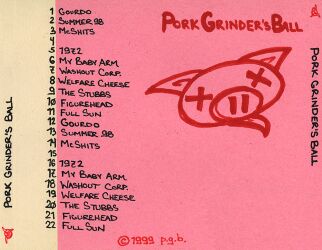 PORK GRINDER'S BALL
1 GOURDO
2 SUMMER 98
3 McSHITS
4
5 1972
6 MY BABY ARM
7 WASHOUT CORP.
8 WELFARE CHEESE
9 THE STUBBS
10 FIGUREHEAD
11 FULL SUN
12 GOURDO
13 SUMMER 98
14 McSHITS
15
16 1972
17 MY BABY ARM
18 WASHOUT CORP.
19 WELFARE CHEESE
20 THE STUBBS
21 FIGUREHEAD
22 FULL SUN
© 1999 p.g.b.
PORK GRINDER'S BALL
PORK GRINDER'S BALL